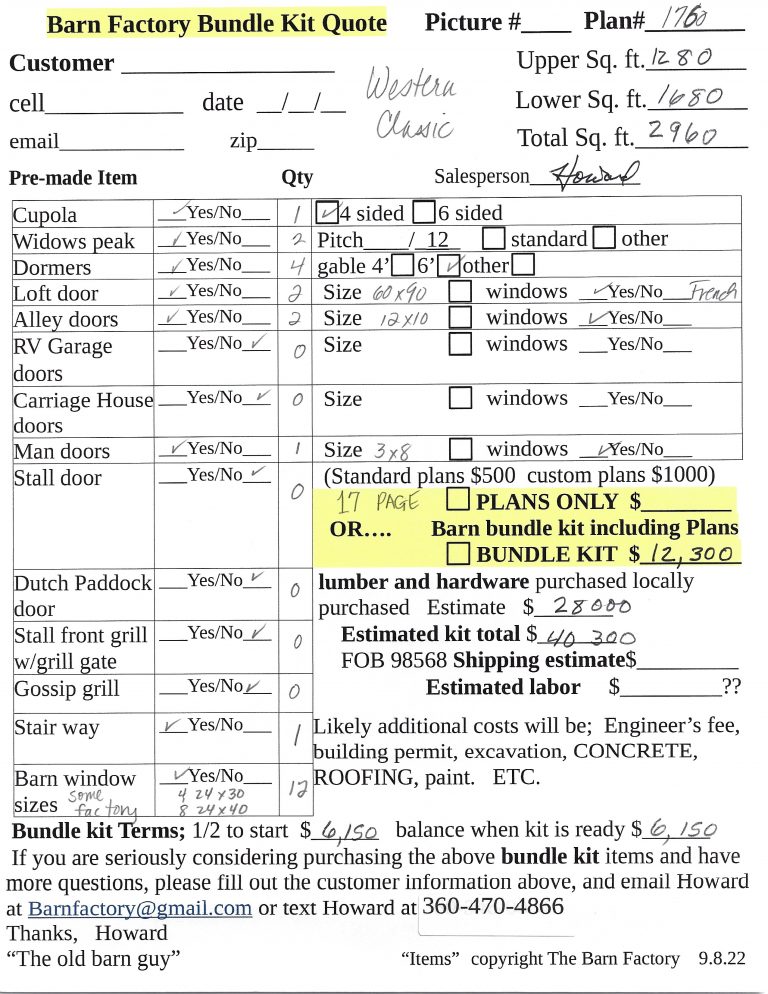 Barn Factory Bundle Kit Quote Picture #____ Plan# 1760
Customer ________________ Upper Sq. ft. 1280
Western
cell___________ date __/__/__ Lower Sq. ft. 1680
Classic
email____________ zip_____ Total Sq. ft. 2960
Pre-made Item Qty Salesperson Howard
Cupola ✓Yes/No___ 1 ☑4 sided ☐6 sided
Widows peak ✓Yes/No___ 2 Pitch____/ 12 ☐ standard ☐ other
Dormers ✓Yes/No___ 4 gable 4’☐ 6’☑other☐
Loft door ✓Yes/No___ 2 Size 60x90 ☐ windows ✓Yes/No___ French
Alley doors ✓Yes/No___ 2 Size 12x10 ☐ windows ✓Yes/No___
RV Garage ___Yes/No✓ 0 Size ☐ windows ___Yes/No___
doors
Carriage House ___Yes/No ✓ 0 Size ☐ windows ___Yes/No___
doors
Man doors ✓Yes/No___ 1 Size 3x8 ☐ windows ✓Yes/No___
Stall door ___Yes/No ✓ 0 (Standard plans $500 custom plans $1000)
17 PAGE ☐ PLANS ONLY $________
OR…. Barn bundle kit including Plans
☐ BUNDLE KIT $ 12,300
Dutch Paddock ___Yes/No ✓ 0 lumber and hardware purchased locally
door purchased Estimate $ 28000
Stall front grill ___Yes/No ✓ 0 Estimated kit total $ 40 300
w/grill gate FOB 98568 Shipping estimate$_________
Gossip grill ___Yes/No ✓ 0 Estimated labor $_________??
Stair way ✓Yes/No___ 1 Likely additional costs will be; Engineer’s fee,
building permit, excavation, CONCRETE,
Barn window ✓Yes/No___ 12 ROOFING, paint. ETC.
sizes some 4 24x30
factory 8 24x40
Bundle kit Terms; 1/2 to start $ 6,150 balance when kit is ready $ 6,150
If you are seriously considering purchasing the above bundle kit items and have
more questions, please fill out the customer information above, and email Howard
at Barnfactory@gmail.com or text Howard at 360-470-4866
Thanks, Howard
“The old barn guy” “Items” copyright The Barn Factory 9.8.22